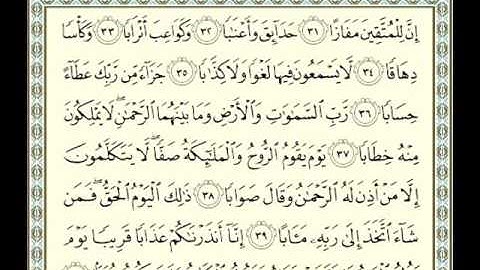 إِنَّ لِلْمُتَّقِينَ مَفَازًا ٣١ حَدَآئِقَ وَأَعْنَٰبًا ٣٢ وَكَوَاعِبَ أَتْرَابًا ٣٣ وَكَأْسًا
دِهَاقًا ٣٤ لَّا يَسْمَعُونَ فِيهَا لَغْوًا وَلَا كِذَّٰبًا ٣٥ جَزَآءً مِّن رَّبِّكَ عَطَآءً
حِسَابًا ٣٦ رَّبِّ ٱلسَّمَٰوَٰتِ وَٱلْأَرْضِ وَمَا بَيْنَهُمَا ٱلرَّحْمَٰنِ ۖ لَا يَمْلِكُونَ
مِنْهُ خِطَابًا ٣٧ يَوْمَ يَقُومُ ٱلرُّوحُ وَٱلْمَلَٰٓئِكَةُ صَفًّا ۖ لَّا يَتَكَلَّمُونَ
إِلَّا مَنْ أَذِنَ لَهُ ٱلرَّحْمَٰنُ وَقَالَ صَوَابًا ٣٨ ذَٰلِكَ ٱلْيَوْمُ ٱلْحَقُّ ۖ فَمَن
شَآءَ ٱتَّخَذَ إِلَىٰ رَبِّهِۦ مَـَٔابًا ٣٩ إِنَّآ أَنذَرْنَٰكُمْ عَذَابًا قَرِيبًا يَوْمَ